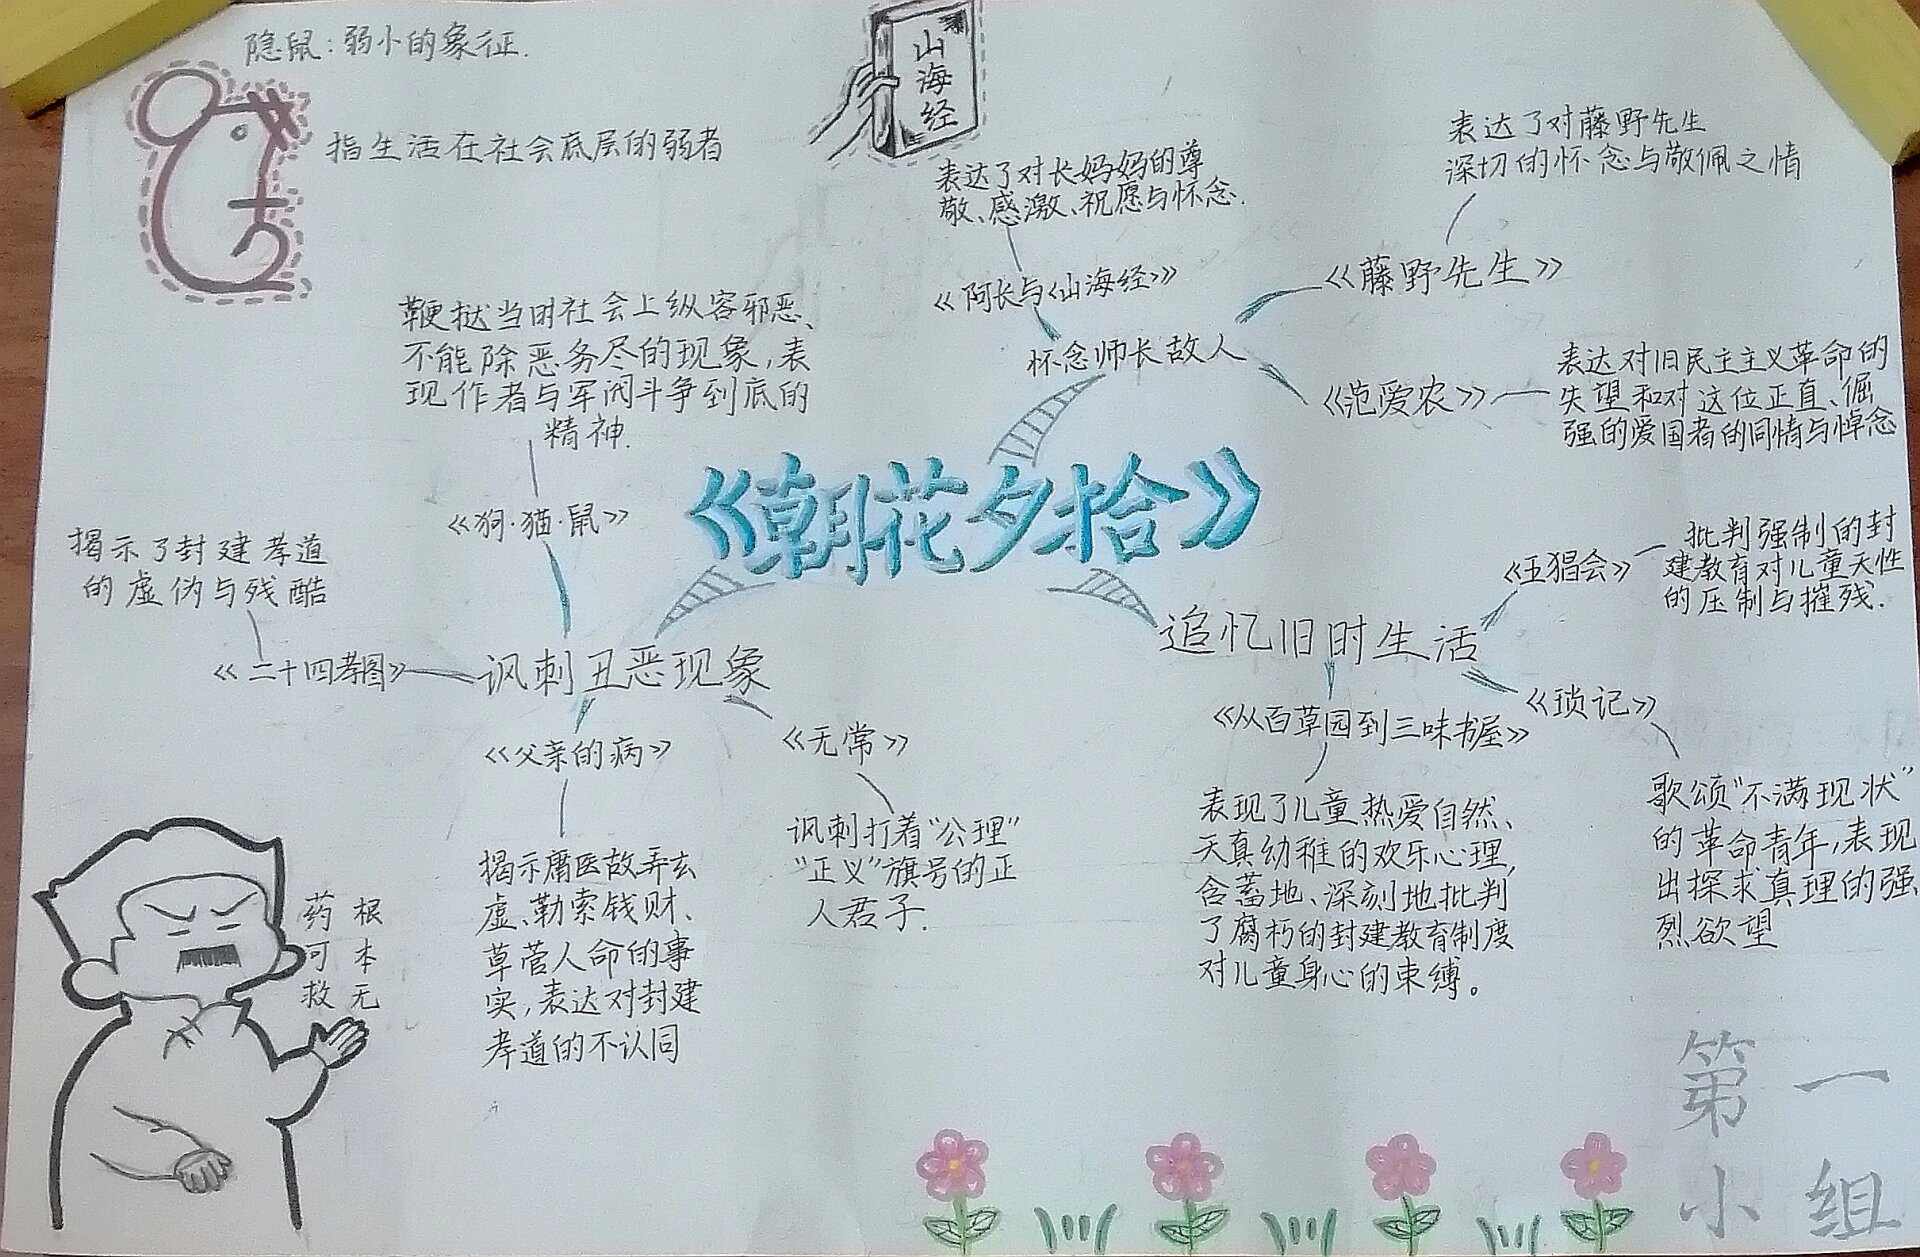 隐鼠:弱小的象征.
指生活在社会底层的弱者
山海经
表达了对长妈妈的尊
敬、感激、祝愿与怀念.
《阿长与《山海经》》
表达了对藤野先生
深切的怀念与敬佩之情
《藤野先生》
怀念师长故人
《范爱农》
表达对旧民主主义革命的
失望和对这位正直、倔
强的爱国者的同情与悼念
鞭挞当时社会上纵容邪恶、
不能除恶务尽的现象,表
现作者与军阀斗争到底的
精神.
《狗·猫·鼠》
《朝花夕拾》
揭示了封建孝道
的虚伪与残酷
《二十四孝图》
讽刺丑恶现象
《父亲的病》
《无常》
揭示庸医故弄玄
虚、勒索钱财、
草菅人命的事
实,表达对封建
孝道的不认同
讽刺打着“公理”
“正义”旗号的正
人君子.
追忆旧时生活
《五猖会》
批判强制的封
建教育对儿童天性
的压制与摧残.
《从百草园到三味书屋》
《琐记》
表现了儿童热爱自然、
天真幼稚的欢乐心理,
含蓄地、深刻地批判
了腐朽的封建教育制度
对儿童身心的束缚。
歌颂“不满现状”
的革命青年,表现
出探求真理的强
烈欲望
根本无
药可救
第一
小组